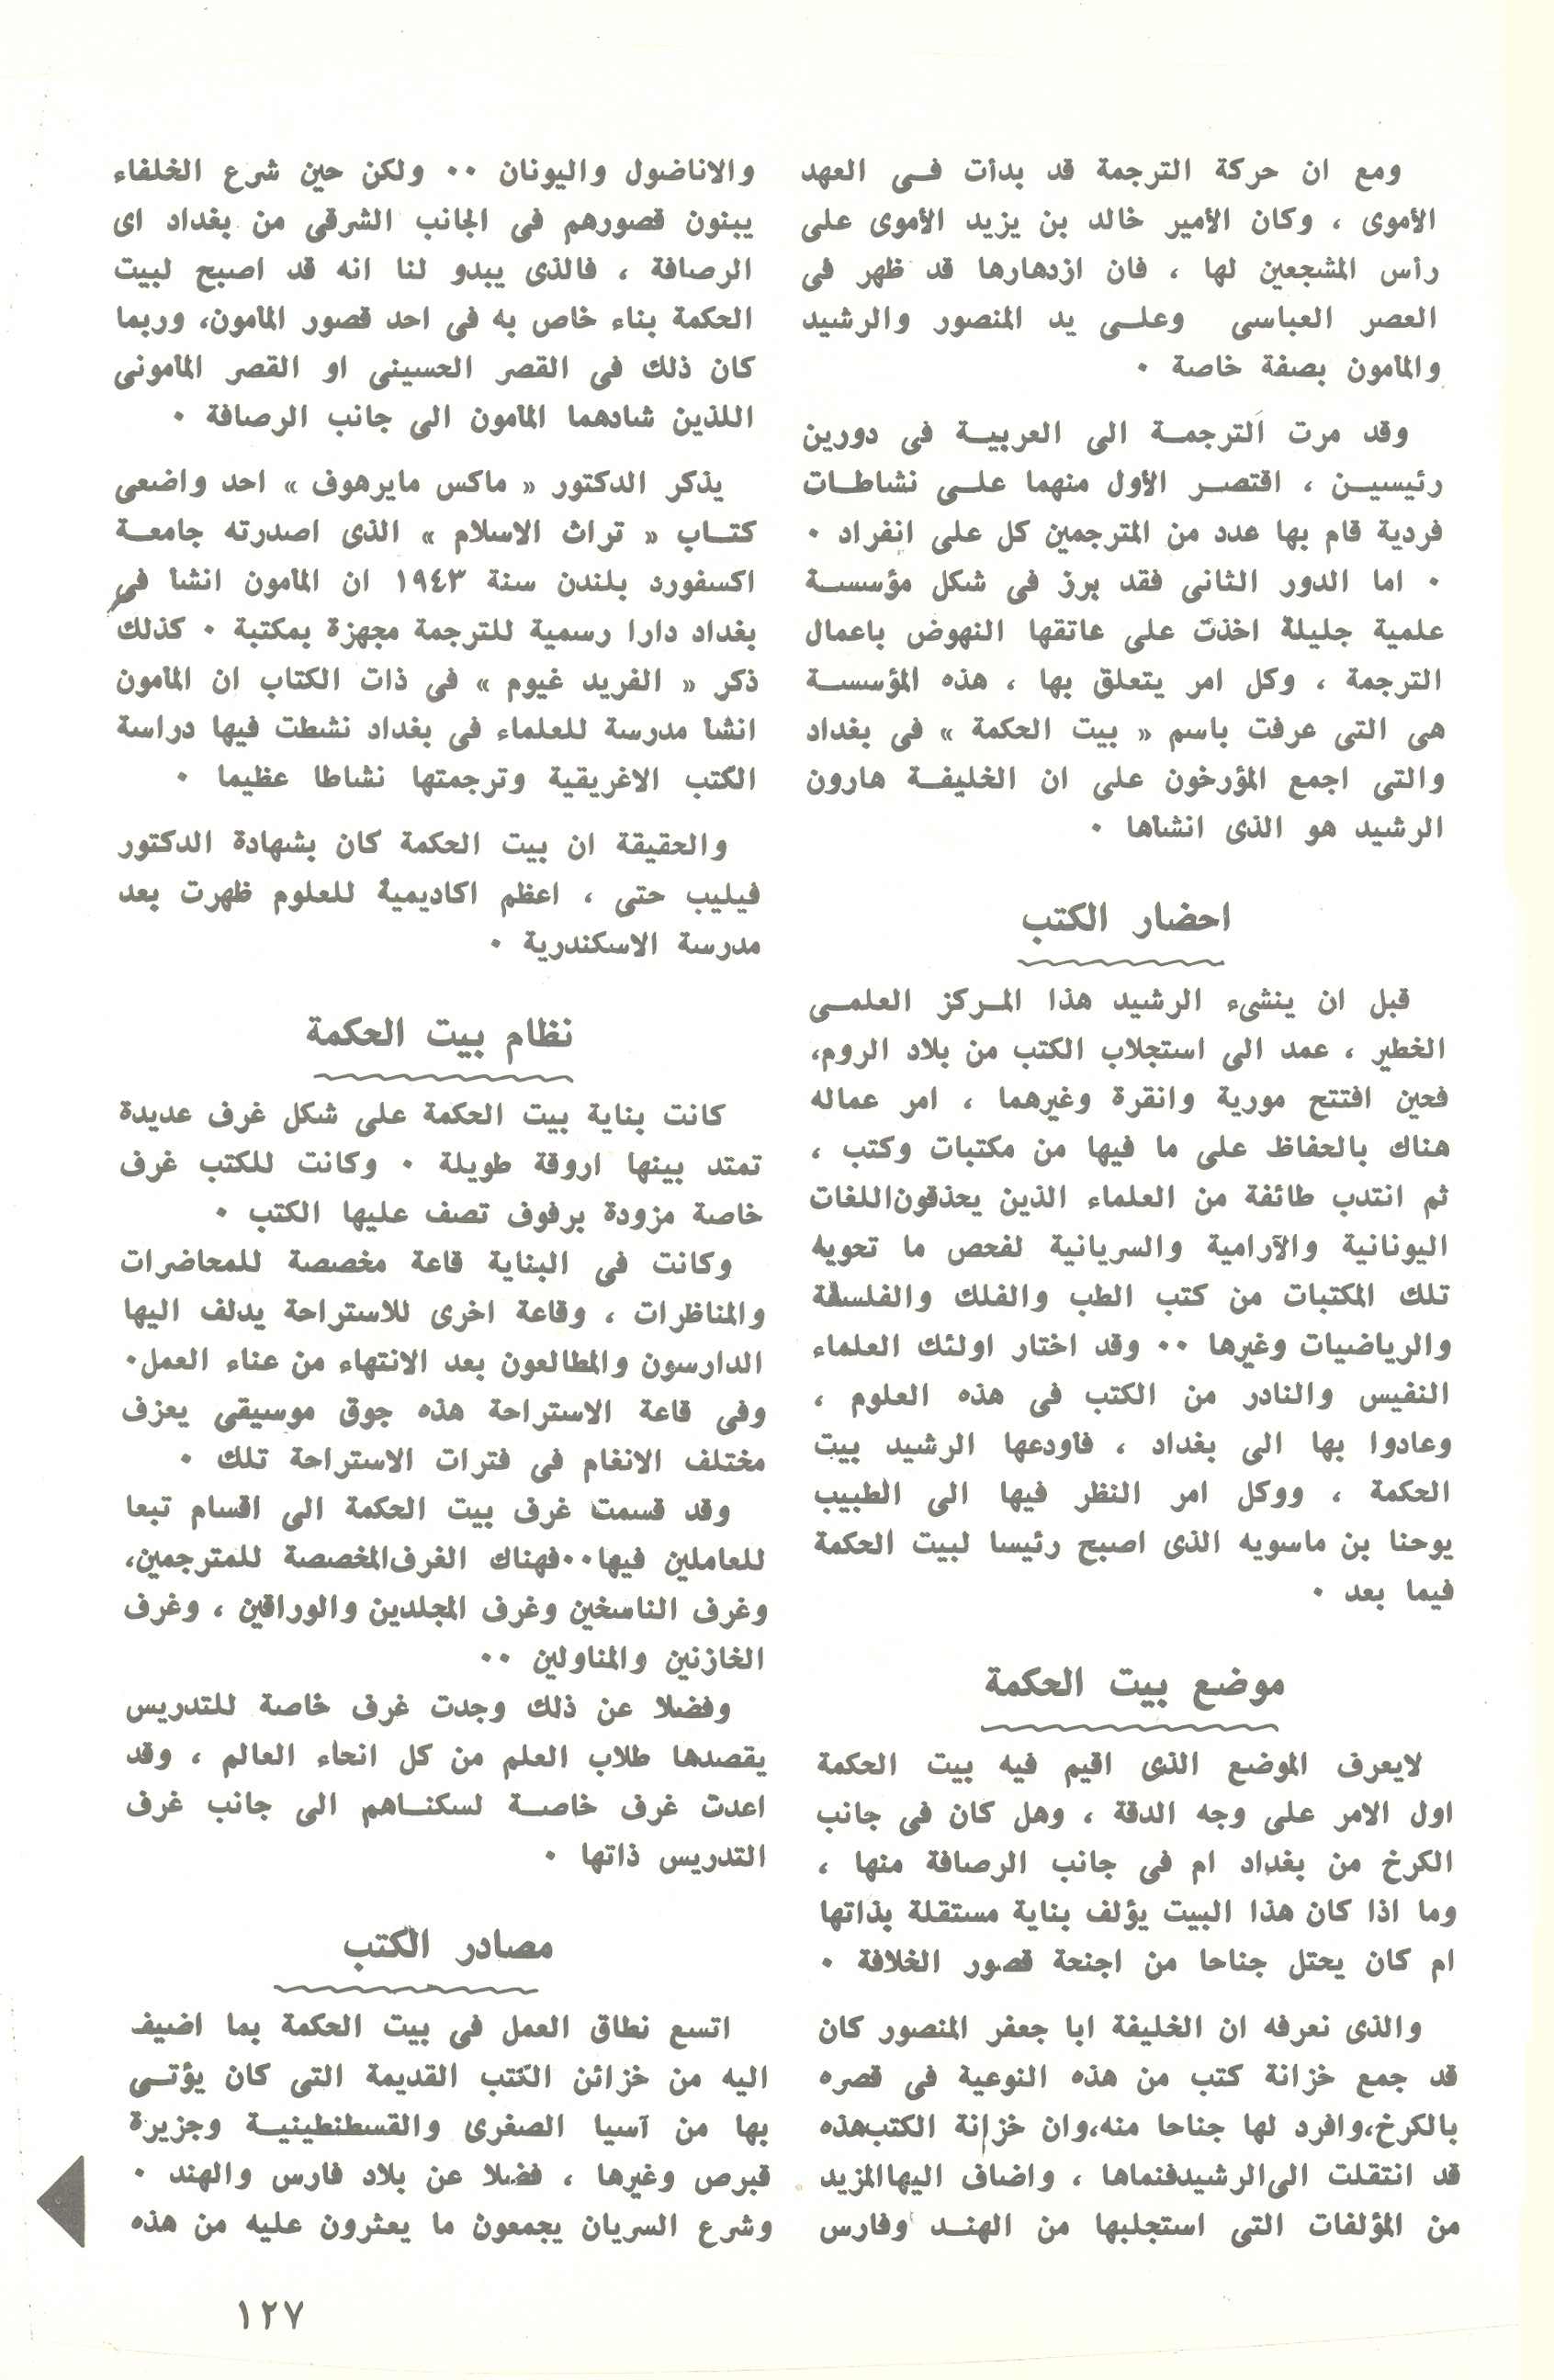 ومع ان حركة الترجمة قد بدأت فى العهد
الأموى ، وكان الأمير خالد بن يزيد الأموى على
رأس المشجعين لها ، فان ازدهارها قد ظهر فى
العصر العباسى وعلى يد المنصور والرشيد
والمأمون بصفة خاصة ٠
وقد مرت الترجمة الى العربية فى دورين
رئيسين ، اقتصر الأول منهما على نشاطات
فردية قام بها عدد من المترجمين كل على انفراد ٠
٠ اما الدور الثانى فقد برز فى شكل مؤسسة
علمية جليلة اخذت على عاتقها النهوض باعمال
الترجمة ، وكل امر يتعلق بها ، هذه المؤسسة
هى التى عرفت باسم « بيت الحكمة » فى بغداد
والتى اجمع المؤرخون على ان الخليفة هارون
الرشيد هو الذى انشأها ٠
احضار الكتب
قبل ان ينشىء الرشيد هذا المركز العلمى
الخطير ، عمد الى استجلاب الكتب من بلاد الروم،
فحين افتتح مورية وانقرة وغيرهما ، امر عماله
هناك بالحفاظ على ما فيها من مكتبات وكتب ،
ثم انتدب طائفة من العلماء الذين يحذقون اللغات
اليونانية والآرامية والسريانية لفحص ما تحويه
تلك المكتبات من كتب الطب والفلك والفلسفة
والرياضيات وغيرها ٠٠ وقد اختار اولئك العلماء
النفيس والنادر من الكتب فى هذه العلوم ،
وعادوا بها الى بغداد ، فأودعها الرشيد بيت
الحكمة ، ووكل امر النظر فيها الى الطبيب
يوحنا بن ماسويه الذى اصبح رئيسا لبيت الحكمة
فيما بعد ٠
موضع بيت الحكمة
لايعرف الموضع الذى اقيم فيه بيت الحكمة
اول الامر على وجه الدقة ، وهل كان فى جانب
الكرخ من بغداد ام فى جانب الرصافة منها ،
وما اذا كان هذا البيت يؤلف بناية مستقلة بذاتها
ام كان يحتل جناحا من اجنحة قصور الخلافة ٠
والذى نعرفه ان الخليفة ابا جعفر المنصور كان
قد جمع خزانة كتب من هذه النوعية فى قصره
بالكرخ،وافرد لها جناحا منه،وان خزانة الكتب هذه
قد انتقلت الى الرشيد فنماها ، واضاف اليها المزيد
من المؤلفات التى استجلبها من الهند وفارس
والاناضول واليونان ٠٠ ولكن حين شرع الخلفاء
يبنون قصورهم فى الجانب الشرقى من بغداد اى
الرصافة ، فالذى يبدو لنا انه قد اصبح لبيت
الحكمة بناء خاص به فى احد قصور المأمون، وربما
كان ذلك فى القصر الحسينى او القصر المأمونى
اللذين شادهما المأمون الى جانب الرصافة ٠
يذكر الدكتور « ماكس مايرهوف » احد واضعى
كتاب « تراث الاسلام » الذى اصدرته جامعة
اكسفورد بلندن سنة ١٩٤٣ ان المأمون انشأ فى
بغداد دارا رسمية للترجمة مجهزة بمكتبة ٠ كذلك
ذكر « الفريد غيوم » فى ذات الكتاب ان المأمون
انشأ مدرسة للعلماء فى بغداد نشطت فيها دراسة
الكتب الاغريقية وترجمتها نشاطا عظيما ٠
والحقيقة ان بيت الحكمة كان بشهادة الدكتور
فيليب حتى ، اعظم اكاديمية للعلوم ظهرت بعد
مدرسة الاسكندرية ٠
نظام بيت الحكمة
كانت بناية بيت الحكمة على شكل غرف عديدة
تمتد بينها اروقة طويلة ٠ وكانت للكتب غرف
خاصة مزودة برفوف تصف عليها الكتب ٠
وكانت فى البناية قاعة مخصصة للمحاضرات
والمناظرات ، وقاعة اخرى للاستراحة يدلف اليها
الدارسون والمطالعون بعد الانتهاء من عناء العمل٠
وفى قاعة الاستراحة هذه جوق موسيقى يعزف
مختلف الانغام فى فترات الاستراحة تلك ٠
وقد قسمت غرف بيت الحكمة الى اقسام تبعا
للعاملين فيها٠٠فهناك الغرف المخصصة للمترجمين،
وغرف الناسخين وغرف المجلدين والوراقين ، وغرف
الخازنين والمناولين ٠٠
وفضلا عن ذلك وجدت غرف خاصة للتدريس
يقصدها طلاب العلم من كل انحاء العالم ، وقد
اعدت غرف خاصة لسكناهم الى جانب غرف
التدريس ذاتها ٠
مصادر الكتب
اتسع نطاق العمل فى بيت الحكمة بما اضيف
اليه من خزائن الكتب القديمة التى كان يؤتى
بها من آسيا الصغرى والقسطنطينية وجزيرة
قبرص وغيرها ، فضلا عن بلاد فارس والهند ٠
وشرع السريان يجمعون ما يعثرون عليه من هذه
١٢٧